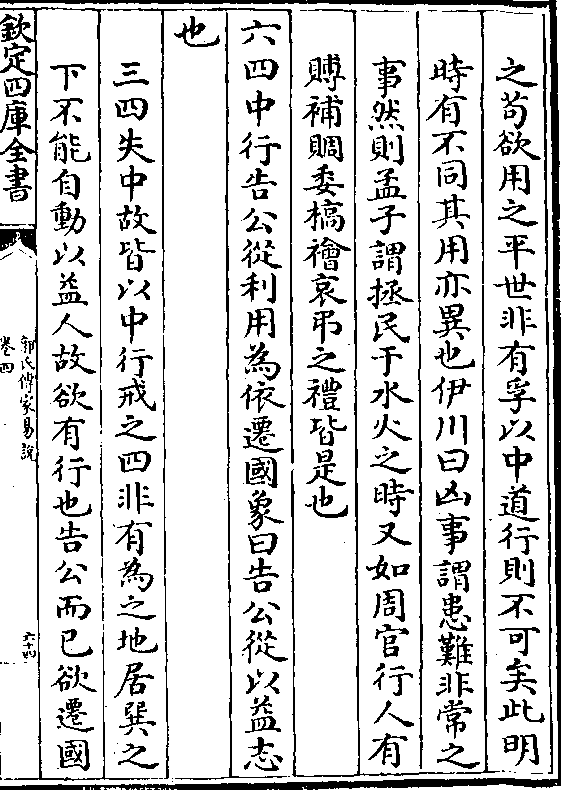 之苟欲用之平世非有孚以中道行則不可矣此明
時有不同其用亦異也伊川曰凶事謂患難非常之
事然則孟子謂拯民于水火之時又如周官行人有
賻補賙委槁禬哀弔之禮皆是也
六四中行告公從利用為依遷國象曰告公從以益志
也
三四失中故皆以中行戒之四非有為之地居巽之
下不能自動以益人故欲有行也告公而已欲遷國
欽定四庫全書
郭氏傳家易說
卷四
六十四